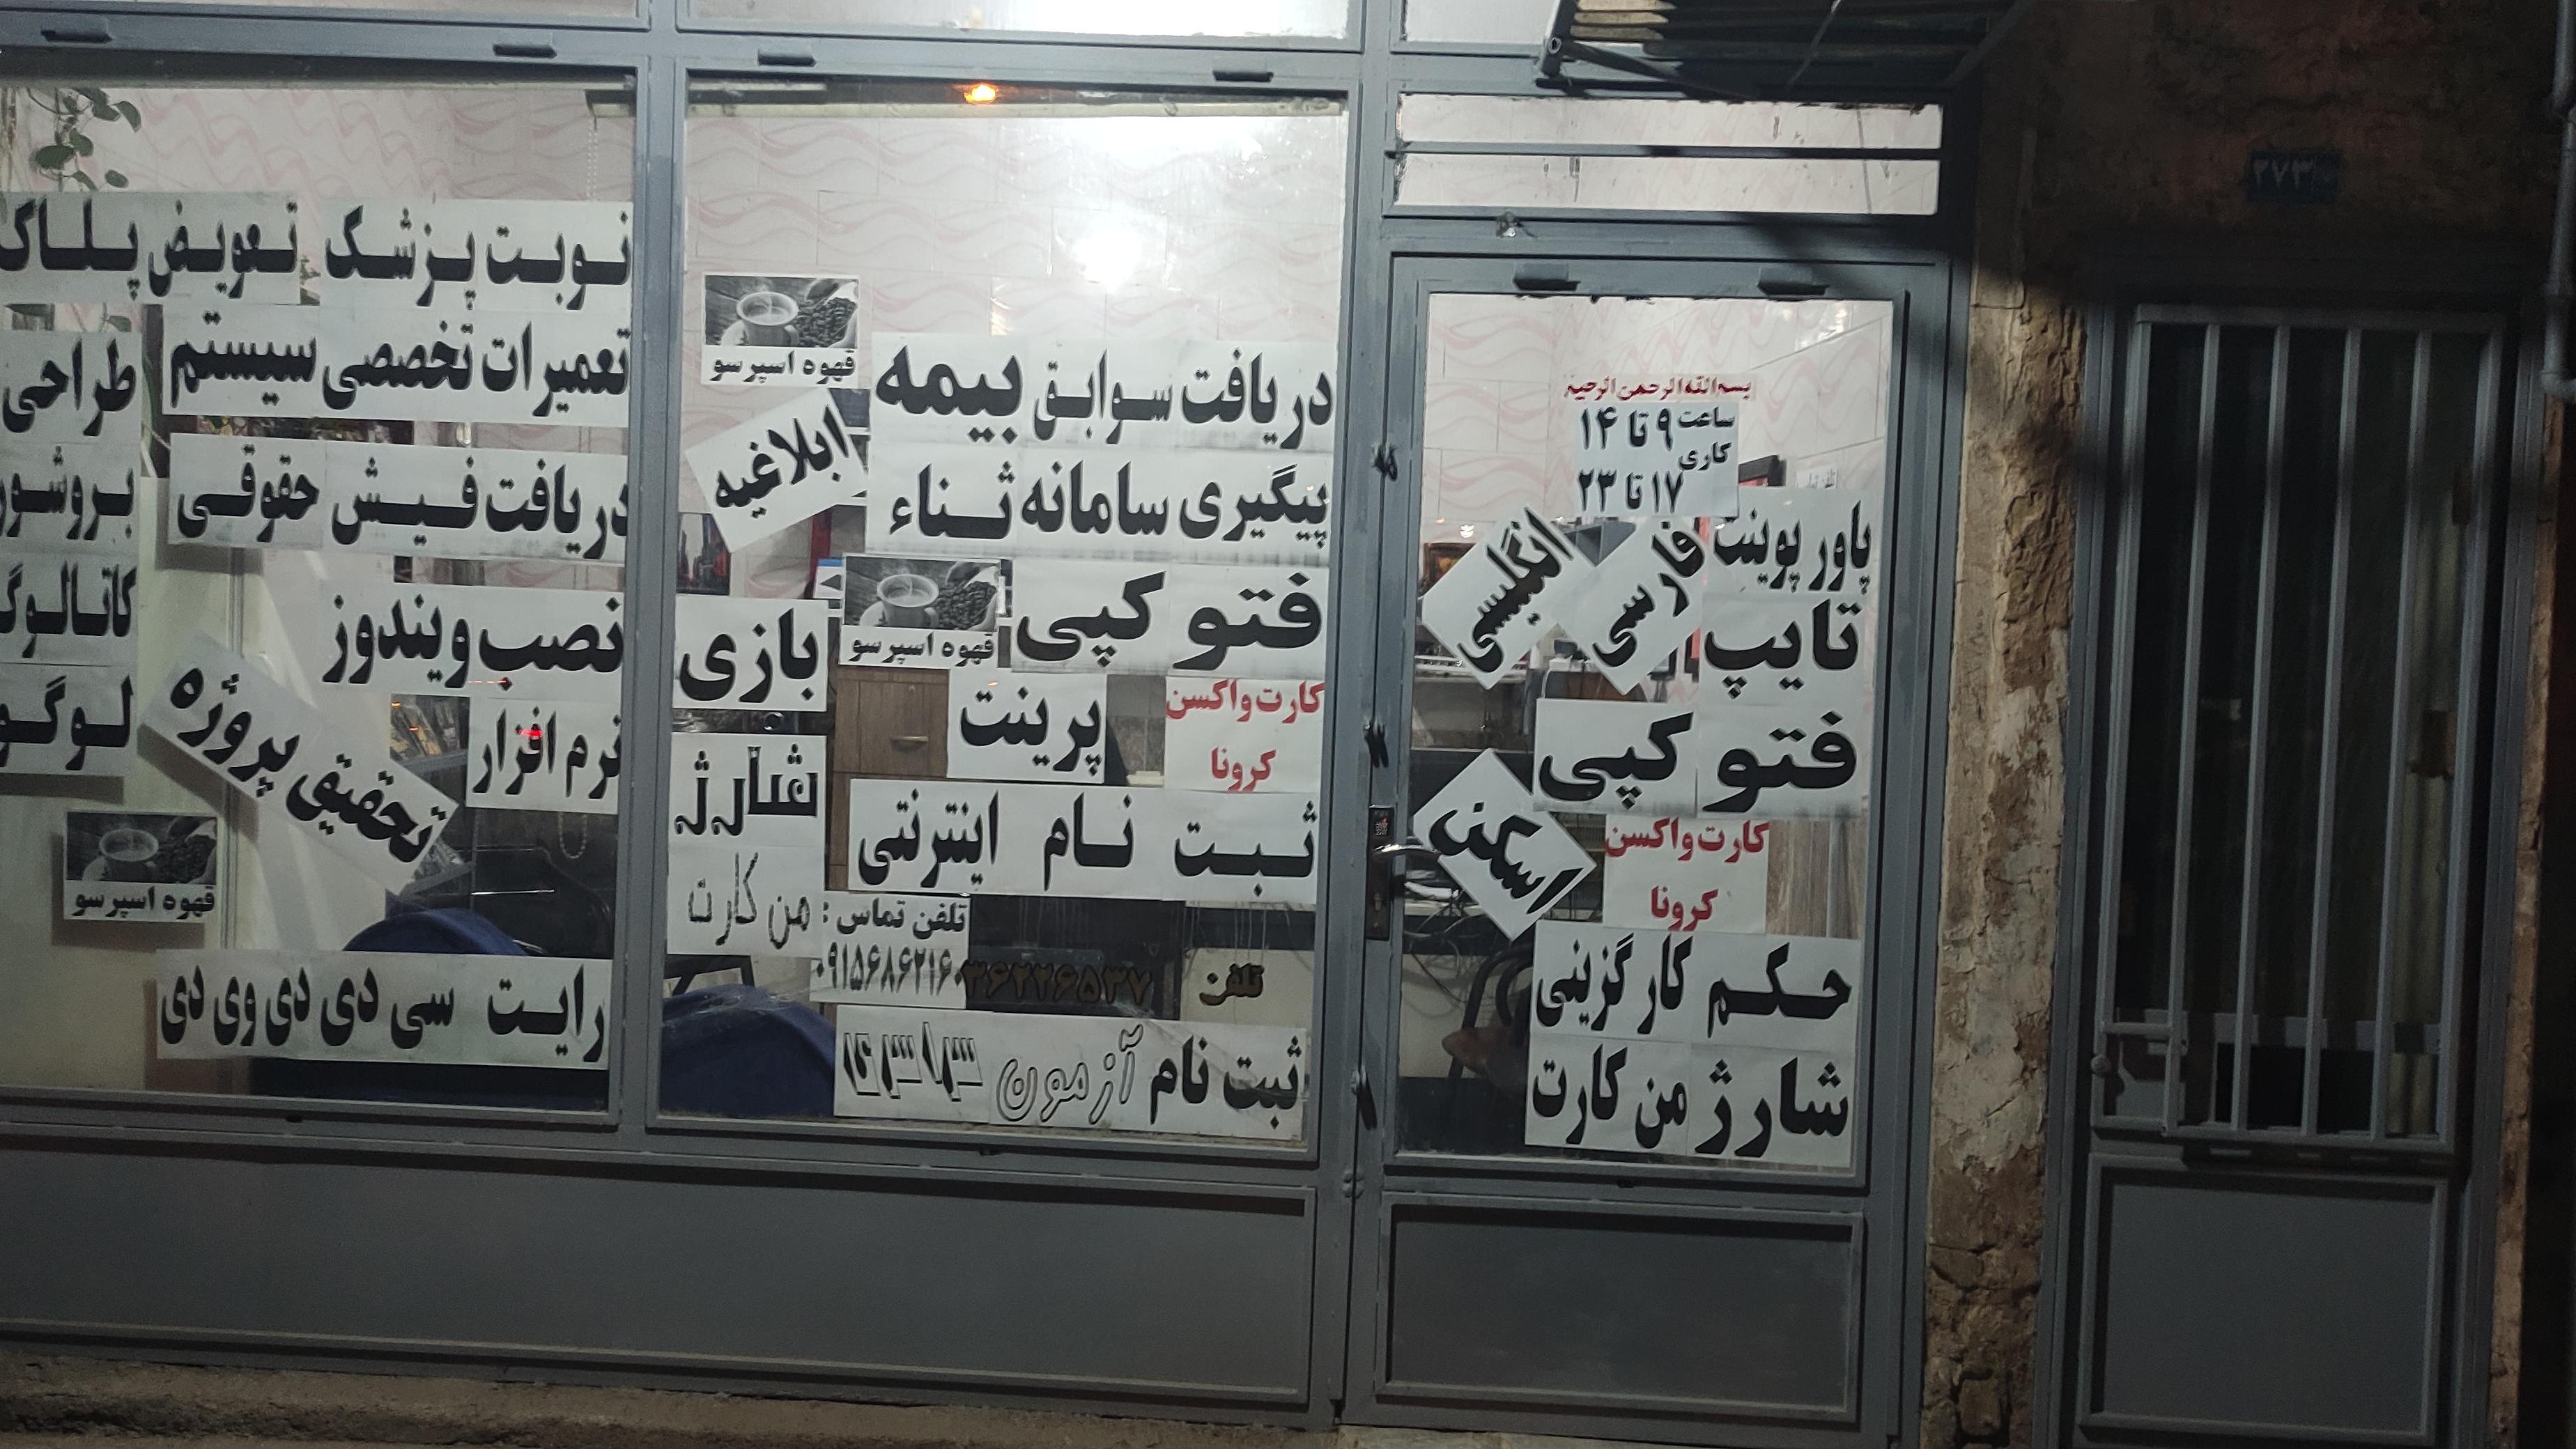 ۲۷۳
بسم الله الرحمن الرحیم
ساعت کاری
۹ تا ۱۴
۱۷ تا ۲۳
پاور پوینت
تایپ
فارسی
انگلیسی
فتو کپی
اسکن
کارت واکسن
کرونا
حکم کارگزینی
شارژ من کارت
قهوه اسپرسو
دریافت سوابق بیمه
ابلاغیه
پیگیری سامانه ثناء
فتو کپی
قهوه اسپرسو
بازی
کارت واکسن
کرونا
پرینت
شارژ
من کارت
ثبت نام اینترنتی
تلفن تماس :
۰۹۱۵۶۸۶۲۱۶۰
تلفن
۳۶۲۲۶۵۳۷
ثبت نام آزمون
نوبت پزشک
تعویض پلاک
تعمیرات تخصصی سیستم
دریافت فیش حقوقی
نصب ویندوز
نرم افزار
تحقیق پروژه
رایت سی دی دی وی دی
طراحی
بروشور
کاتالوگ
لوگو
قهوه اسپرسو